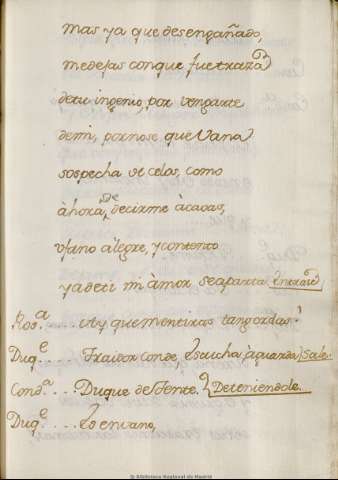 mas ya que desengañado,
medejas conque fue traza
detu ingenio, por vengarte
demi, pornose que vana
sospecha de celos, como
àhora, de decirme àcavas,
ufano àlegre, y contento
yadeti mi àmor seaparta.
Ros.ª .... Ay quementiras tangordas!
Duq.e .... Traidor Conde, Escucha, àguarda, Sale.
Cond.ª .... Duque detente. Deteniendole.
Duq.e .... Es envano,
© Biblioteca Nacional de Madrid